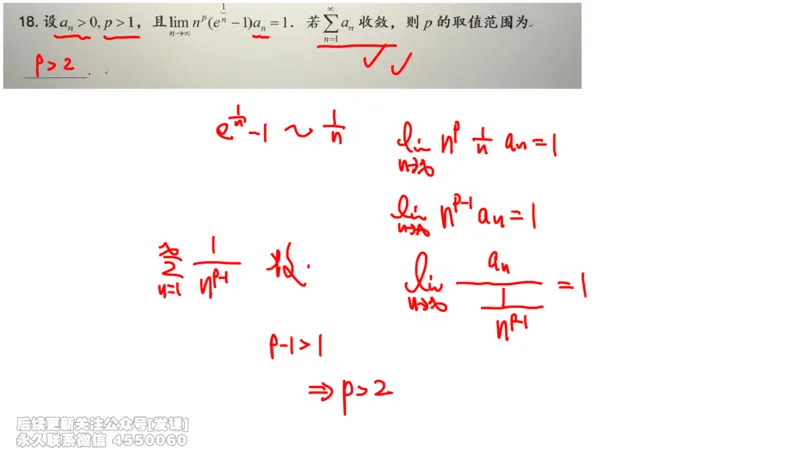 18. 设 aₙ > 0, p > 1, 且 lim_{n→∞} n^p (e^{1/n} − 1)aₙ = 1. 若 ∑_{n=1}^{∞} aₙ 收敛, 则 p 的取值范围为
p>2 .
e^{1/n} -1 ~ 1/n
lim_{n→∞} n^p 1/n aₙ = 1
lim_{n→∞} n^{p-1} aₙ = 1
∑_{n=1}^{∞} 1/n^{p-1} 收.
lim_{n→∞} aₙ/(1/n^{p-1}) = 1
p-1>1
⇒ p>2
后续更新关注公众号[发课]
永久联系微信 4550060